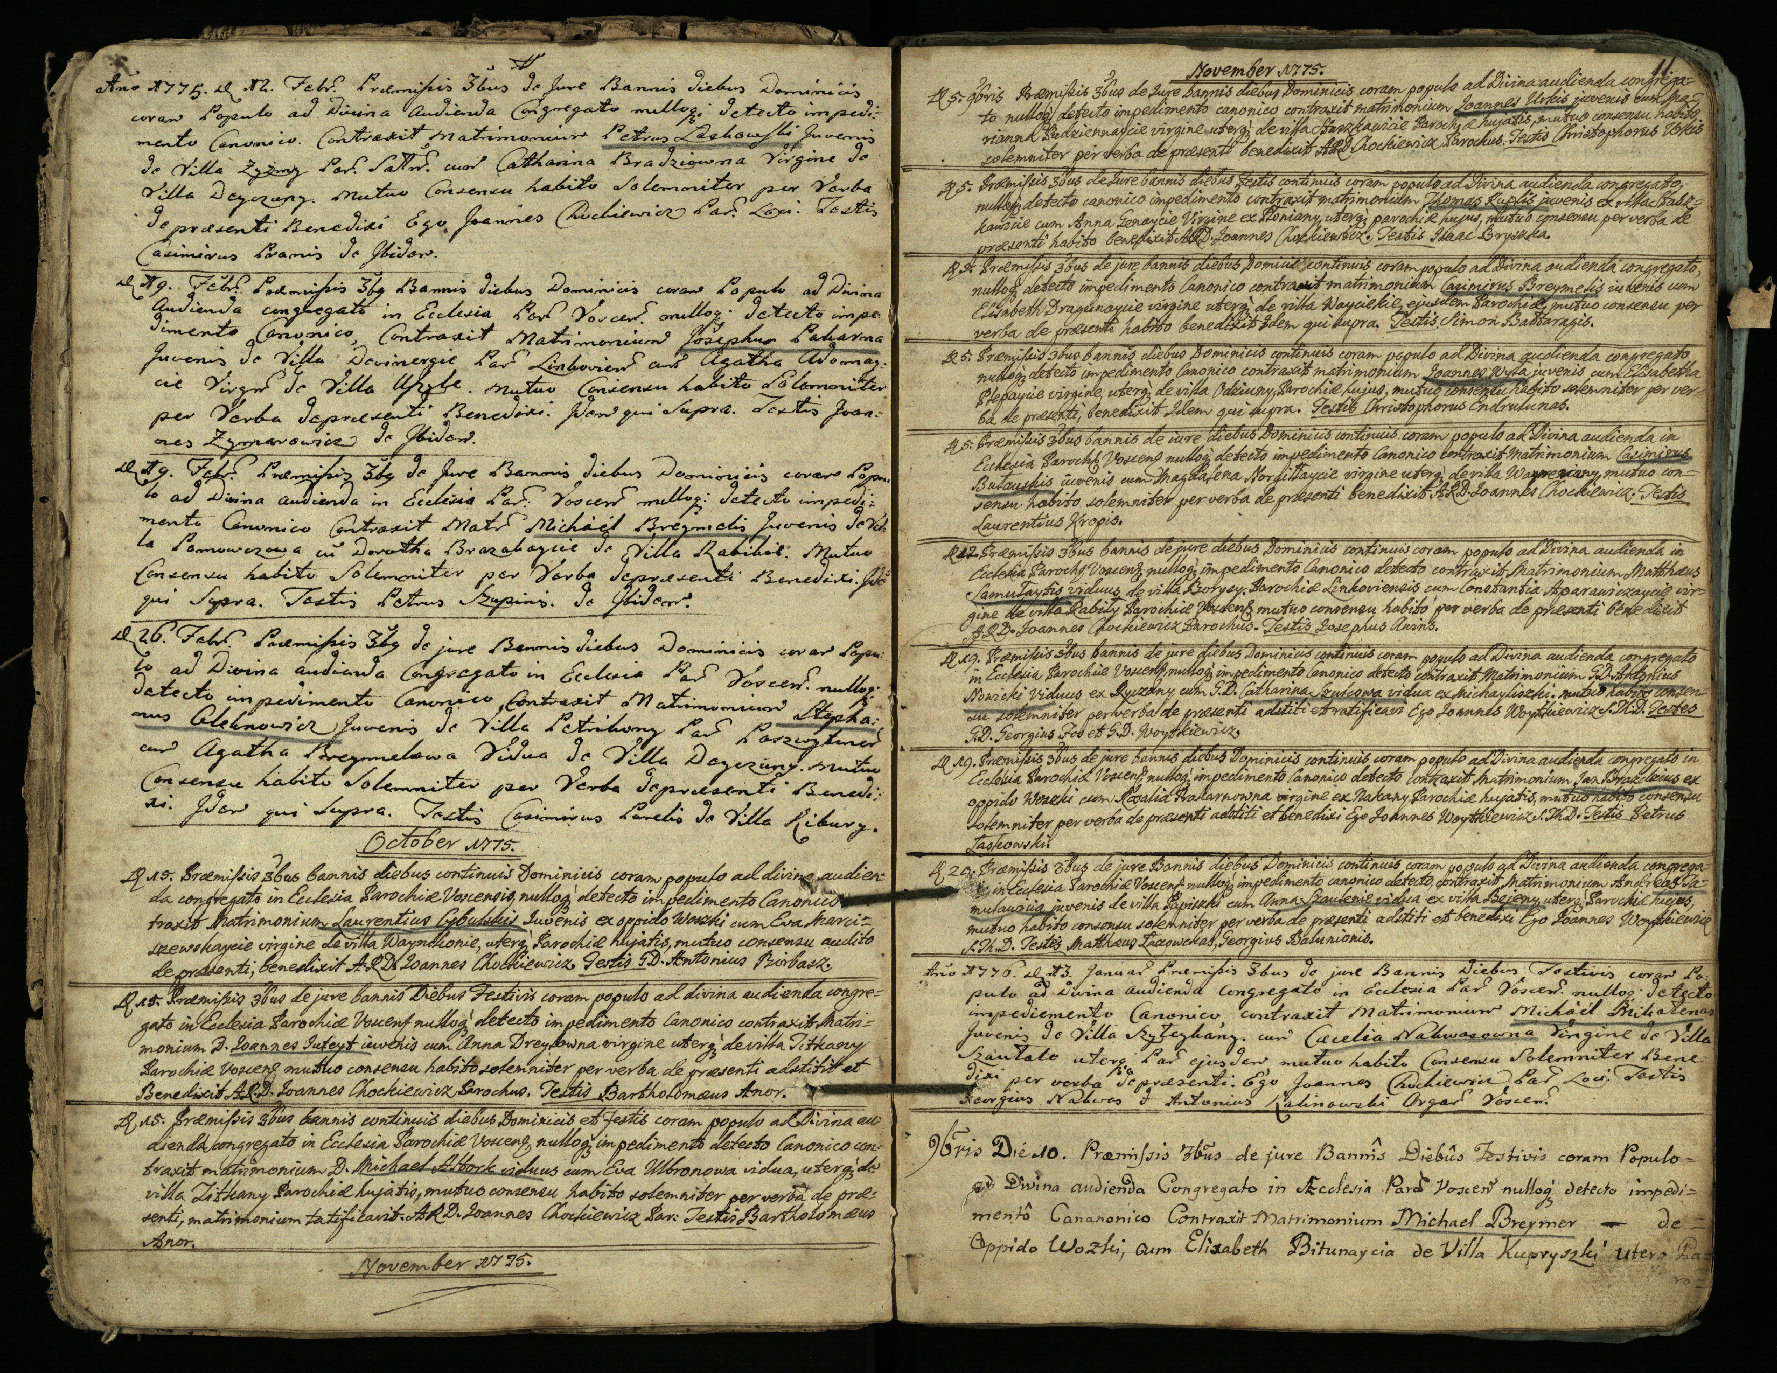 Año 1775. D 12. Febr. Præmissis 3bus de Jure Bannis diebus Dominicis
coram Populo ad Divina Audienda Congregato nulloq; detecto impedi-
mento Canonico. Contraxit Matrimonium Petrus Laskowski Juvenis
de Villa Zyzmy Par. cum Catharina Bradziowna Virgine de
Villa Degczuny. Mutuo Consensu habito Solemniter per Verba
de præsenti Benedixi Ego Joannes Chockiewicz Par. Loci. Testis
Casimirus de Ibidem.
D 19. Febr. Præmissis 3bq Bannis diebus Dominicis coram Populo ad Divina
Audienda congregato in Ecclesia Par. Voscen. nulloq; detecto impe-
dimento Canonico, Contraxit Matrimonium Josephus Paharna
Juvenis de Villa Par. Linkovien. cum Agatha Adomay-
cie Virgin. de Villa Mutuo Consensu habito Solemniter
per Verba depræsenti Benedixi. Idem qui Supra. Testis Joan-
nes Zymarowicz de Ibidem.
D 19. Febr. Præmissis 3bq de Jure Bannis diebus Dominicis coram Popu-
lo ad Divina audienda in Ecclesia Par. Voscen. nulloq; detecto impedi-
mento Canonico Contraxit Matr. Michael Breymelis Juvenis de Vil-
la cu Dorotha de Villa Rabikie. Mutuo
Consensu habito Solemniter per Verba depræsenti Benedixi. Ide
qui Supra. Testis Petrus Szupinis. de Ibidem.
D 26. Febr. Præmissis 3bq de jure Bannis diebus Dominicis coram Popu-
lo ad Divina audienda Congregato in Ecclesia Par. Voscen. nulloq;
detecto impedimento Canonico, Contraxit Matrimonium Stepha-
nus Glebnowicz Juvenis de Villa Petrikany Par.
cum Agatha Breymelowa Vidua de Villa Degczuny. Mutuo
Consensu habito Solemniter per Verba depræsenti Benedi-
xi. Idem qui Supra. Testis Casimirus Parelis de Villa Kibury.
October 1775.
D 15. Præmissis 3bus bannis diebus continuis Dominicis coram populo ad divina audien-
da congregato in Ecclesia Parochiæ Voscensis, nulloq; detecto impedimento Canonico con-
traxit Matrimonium Laurentius Cybulskis Juvenis ex oppido Woszki cum Eva Marcie-
szewskaycie virgine de villa Waynekonie, uterq; Parochiæ hujatis, mutuo consensu audito
de præsenti, benedixit A.R.D. Joannes Chockiewicz. Testis G.D. Antonius Birbasz.
D 15. Præmissis 3bus de jure bannis Diebus Festivis coram populo ad divina audienda congre-
gato in Ecclesia Parochiæ Voscens. nulloq; detecto impedimento Canonico contraxit Matri-
monium D. Joannes Juteyt iuvenis cum Anna Dreydowna virgine uterq; de villa Titkany
Parochiæ Voscens. mutuo consensu habito solemniter per verba de præsenti adstitit et
Benedixit A.R.D. Joannes Chockiewicz Parochus. Testis Bartholomæus Anor.
D 15. Præmissis 3bus bannis continuis diebus Dominicis et festis coram populo ad Divina au-
dienda congregato in Ecclesia Parochiæ Voscens. nulloq; impedimento detecto Canonico con-
traxit matrimonium D. Michael Albork viduus cum Eva Ubronowa vidua, uterq; de
villa Titkany Parochiæ hujatis, mutuo consensu habito solemniter per verba de præ-
senti, matrimonium ratificavit A.R.D. Joannes Chockiewicz Par: Testis Bartholomæus
Anor.
November 1775.
11.
November 1775.
D 5. 9bris Præmissis 3bus de jure bannis diebus Dominicis coram populo ad Divina audienda congrega-
to nulloq; detecto impedimento canonico contraxit matrimonium Joannes Uskis juvenis cum Ma-
rianna virgine uterq; de villa Parochiæ hujatis, mutuo consensu habito
solemniter per verba de præsenti benedixit A.R.D. Chockiewicz Parochus. Testis Christophorus Uskis
D 5. Præmissis 3bus de Jure bannis diebus festis continuis coram populo ad Divina audienda congregato,
nulloq; detecto canonico impedimento contraxit matrimonium Thomas Kuplis juvenis ex villa
cum Anna Virgine ex uterq; parochiæ hujus, mutuo consensu per verba de
præsenti habito benedixit A.R.D. Joannes Chockiewicz. Testis Isaac Bryszka.
D 5. Præmissis 3bus de jure bannis diebus Dominic. continuis coram populo ad Divina audienda congregato,
nulloq; detecto impedimento Canonico contraxit matrimonium Casimirus Breymelis iuvenis cum
Elisabeth Dragunaycie virgine uterq; de villa Waycielie, ejusdem Parochiæ, mutuo consensu per
verba de præsenti habito benedixit Idem qui supra. Testis Simon Battaragis.
D 5. Præmissis 3bus bannis diebus Dominicis continuis coram populo ad Divina audienda congregato
nulloq; detecto impedimento Canonico contraxit matrimonium Joannes juvenis cum Elisabetha
virgine, uterq; de villa Parochiæ hujus, mutuo consensu habito solemniter per ver-
ba de præsenti, benedixit Idem qui supra. Testis Christophorus Endrulunas.
D 5. Præmissis 3bus bannis de iure diebus Dominicis continuis coram populo ad Divina audienda in
Ecclesia Parochiæ Voscens. nulloq; detecto impedimento Canonico contraxit Matrimonium Casimirus
Butauskis iuvenis cum Magdalena virgine uterq; de villa mutuo con-
sensu habito solemniter per verba de præsenti benedixit A.R.D. Joannes Chockiewicz. Testis
Laurentius Kropis.
D 12. Præmissis 3bus bannis de jure diebus Dominicis continuis coram populo ad Divina audienda in
Ecclesia Parochiæ Voscens. nulloq; impedimento Canonico detecto contraxit Matrimonium Matthæus
Jamutaytis viduus de villa Borysy Parochiæ Linkoviensis cum Constantia vir-
gine de villa Rabiky Parochiæ Voscens. mutuo consensu habito per verba de præsenti benedixit
A.R.D. Joannes Chockiewicz Parochus. Testis Josephus Awins.
D 19. Præmissis 3bus bannis de jure diebus Dominicis continuis coram populo ad Divina audienda congregato
in Ecclesia Parochiæ Voscens. nulloq; impedimento Canonico detecto contraxit Matrimonium G.D. Antonius
Nowicki Viduus ex Ryczany cum G.D. Catharina Szukowa vidua ex Michayliszki. mutuo habito consen-
su solemniter per verba de præsenti adstiti et ratificavi Ego Joannes Woytkiewicz S.Th.D. Testes
G.D. Georgius et G.D. Woytkiewicz.
D 19. Præmissis 3bus de jure bannis diebus Dominicis continuis coram populo ad Divina audienda congregato in
Ecclesia Parochiæ Voscens. nulloq; impedimento Canonico detecto contraxit Matrimonium Jan ex
oppido Woszki cum Rosalia virgine ex Nakany Parochiæ hujatis, mutuo habito consensu
solemniter per verba de præsenti adstiti et benedixi Ego Joannes Woytkiewicz S.Th.D. Testis Petrus
Laskowski.
D 20. Præmissis 3bus de jure Bannis diebus Dominicis continuis coram populo ad Divina audienda congrega-
to in Ecclesia Parochiæ Voscens. nulloq; impedimento canonico detecto contraxit Matrimonium Andreas Ja-
mulauscia juvenis de villa cum Anna Szaulenie vidua ex villa uterq; Parochiæ hujus,
mutuo habito consensu solemniter per verba de præsenti adstiti et benedixi Ego Joannes Woytkiewicz
S.Th.D. Testis Matthæus Georgius Balunionis.
Año 1776. D 13. Januar. Præmissis 3bus de jure Bannis Diebus Festivis coram Po-
pulo ad Divina audienda congregato in Ecclesia Par. Voscen. nulloq; detecto
impedimento Canonico contraxit Matrimonium Michael Mikalenas
Juvenis de Villa cum Cæcilia Nakwasowna Virgine de Villa
Szautale uterq; Par. ejusdem mutuo habito Consensu Solemniter Bene-
dixi per verba depræsenti. Ego Joannes Chockiewicz Par. Loci. Testis
Georgius Nakwas & Antonius Kalinowski Organ. Voscen.
9bris Die 10. Præmissis 3bus de jure Bannis Diebus Festivis coram Populo-
ad Divina audienda Congregato in Æcclesia Paro Voscen nulloq; detecto impedi-
mento Cananonico Contraxit Matrimonium Michael Breymer — de-
Oppido Wozki, Cum Elizabeth Bitunaycia de Villa Kupryszki uterq Pa-
ro-